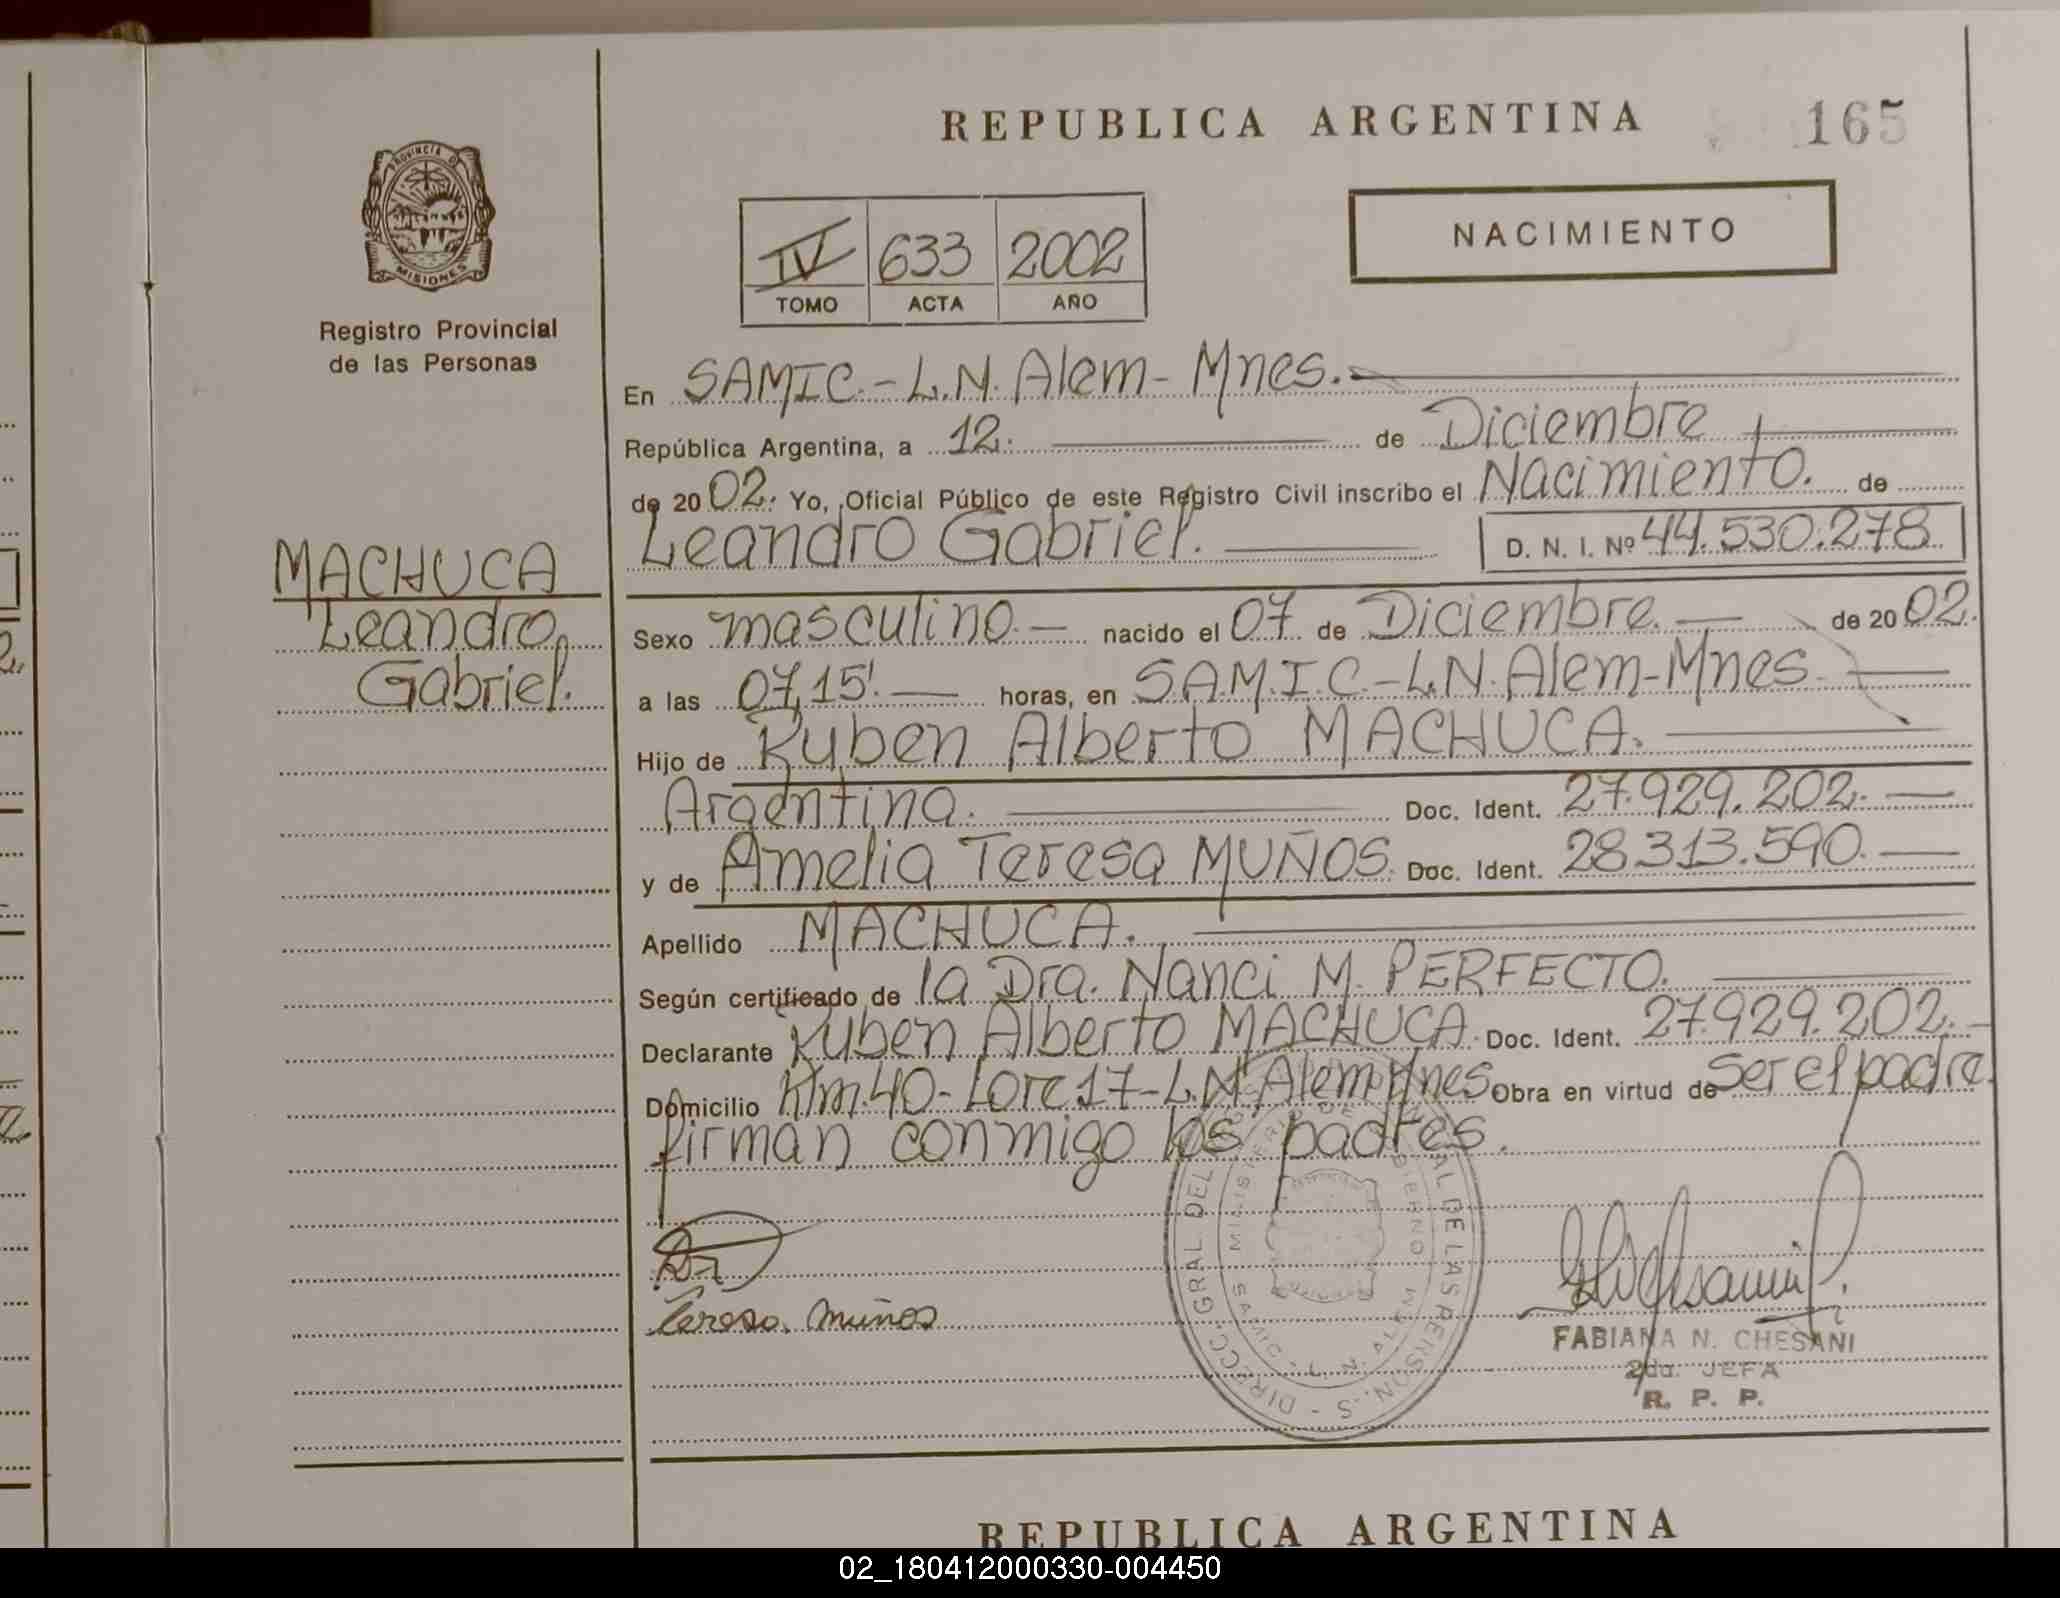 REPUBLICA ARGENTINA
165
PROVINCIA D
MISIONES
Registro Provincial
de las Personas
IV 633 2002
TOMO ACTA AÑO
NACIMIENTO
En SAMIC.-L.N. Alem-Mnes.
República Argentina, a 12. de Diciembre
de 20 02. Yo, Oficial Público de este Registro Civil inscribo el Nacimiento. de
Leandro Gabriel. D. N. I. Nº 44.530.278
MACHUCA
Leandro
Gabriel.
Sexo masculino.- nacido el 07 de Diciembre. de 20 02.
a las 07,15'. horas, en S.A.M.I.C.-L.N. Alem-Mnes.
Hijo de Ruben Alberto MACHUCA.
Argentina. Doc. Ident. 27.929.202.
y de Amelia Teresa MUÑOS. Doc. Ident. 28.313.590.
Apellido MACHUCA.
Según certificado de la Dra. Nanci M. PERFECTO.
Declarante Ruben Alberto MACHUCA. Doc. Ident. 27.929.202.-
Domicilio Km.40-Lote 17-L.N. Alem Mnes. Obra en virtud de ser el padre.
firman conmigo los padres.
Teresa. muños
DIRECC. GRAL. DEL
AL DE LAS PERSON.S
MINISTERIO DE GOBIERNO
SAMIC - L. N. ALEM
FABIANA N. CHESANI
2da. JEFA
R. P. P.
REPUBLICA ARGENTINA
02_180412000330-004450